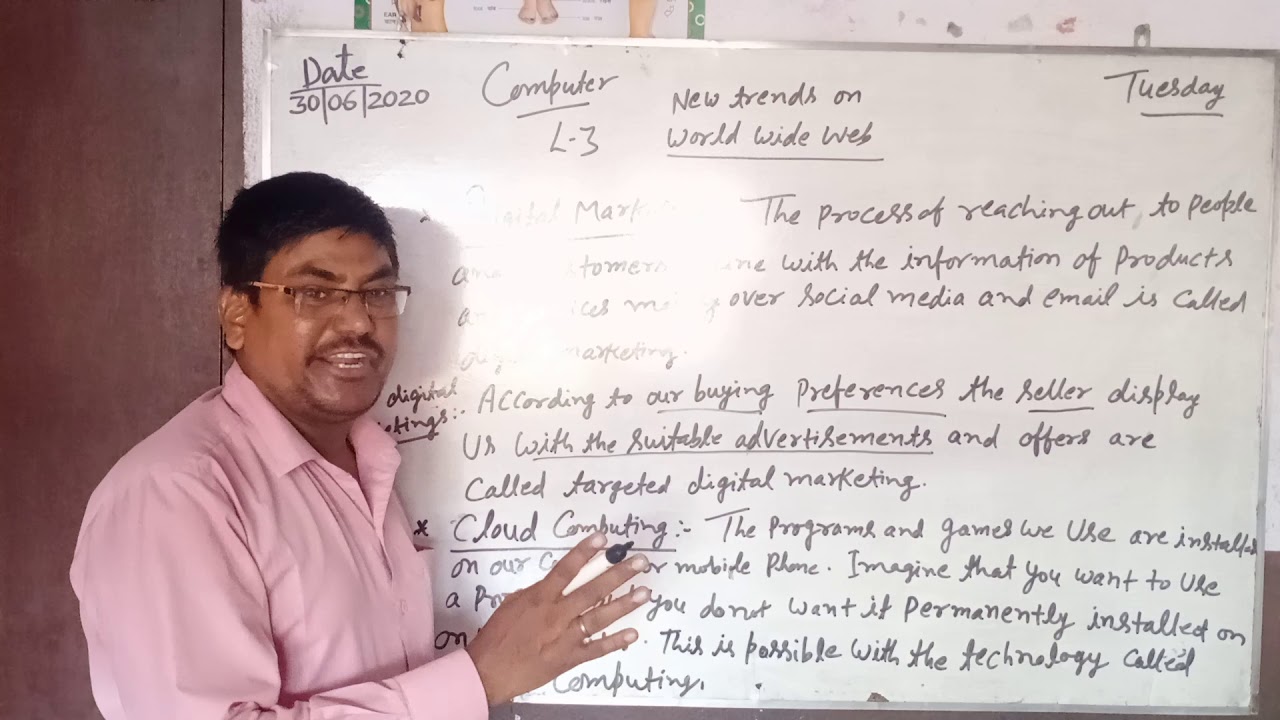 Date
30/06/2020
Computer
L-3
New trends on
World Wide Web
Tuesday
Digital The process of reaching out to people
with the information of Products
over social media and email is called
marketing.
digital
According to our buying Preferences the seller display
us with the suitable advertisements and offers are
Called targeted digital marketing.
* Cloud Computing:- The Programs and games we use are installed
on our or mobile Phone. Imagine that you want to use
a you donot want it Permanently installed on
on . This is possible with the technology called
Computing.